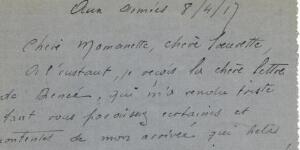 Aux armées 8/4/17
Chère Mamanette, chère Soeurette,
A l'instant, je reçois la chère lettre
de Renée, qui m'a rendu triste
tant vous paraissez certaines et
contentes de mon arrivée qui hélas